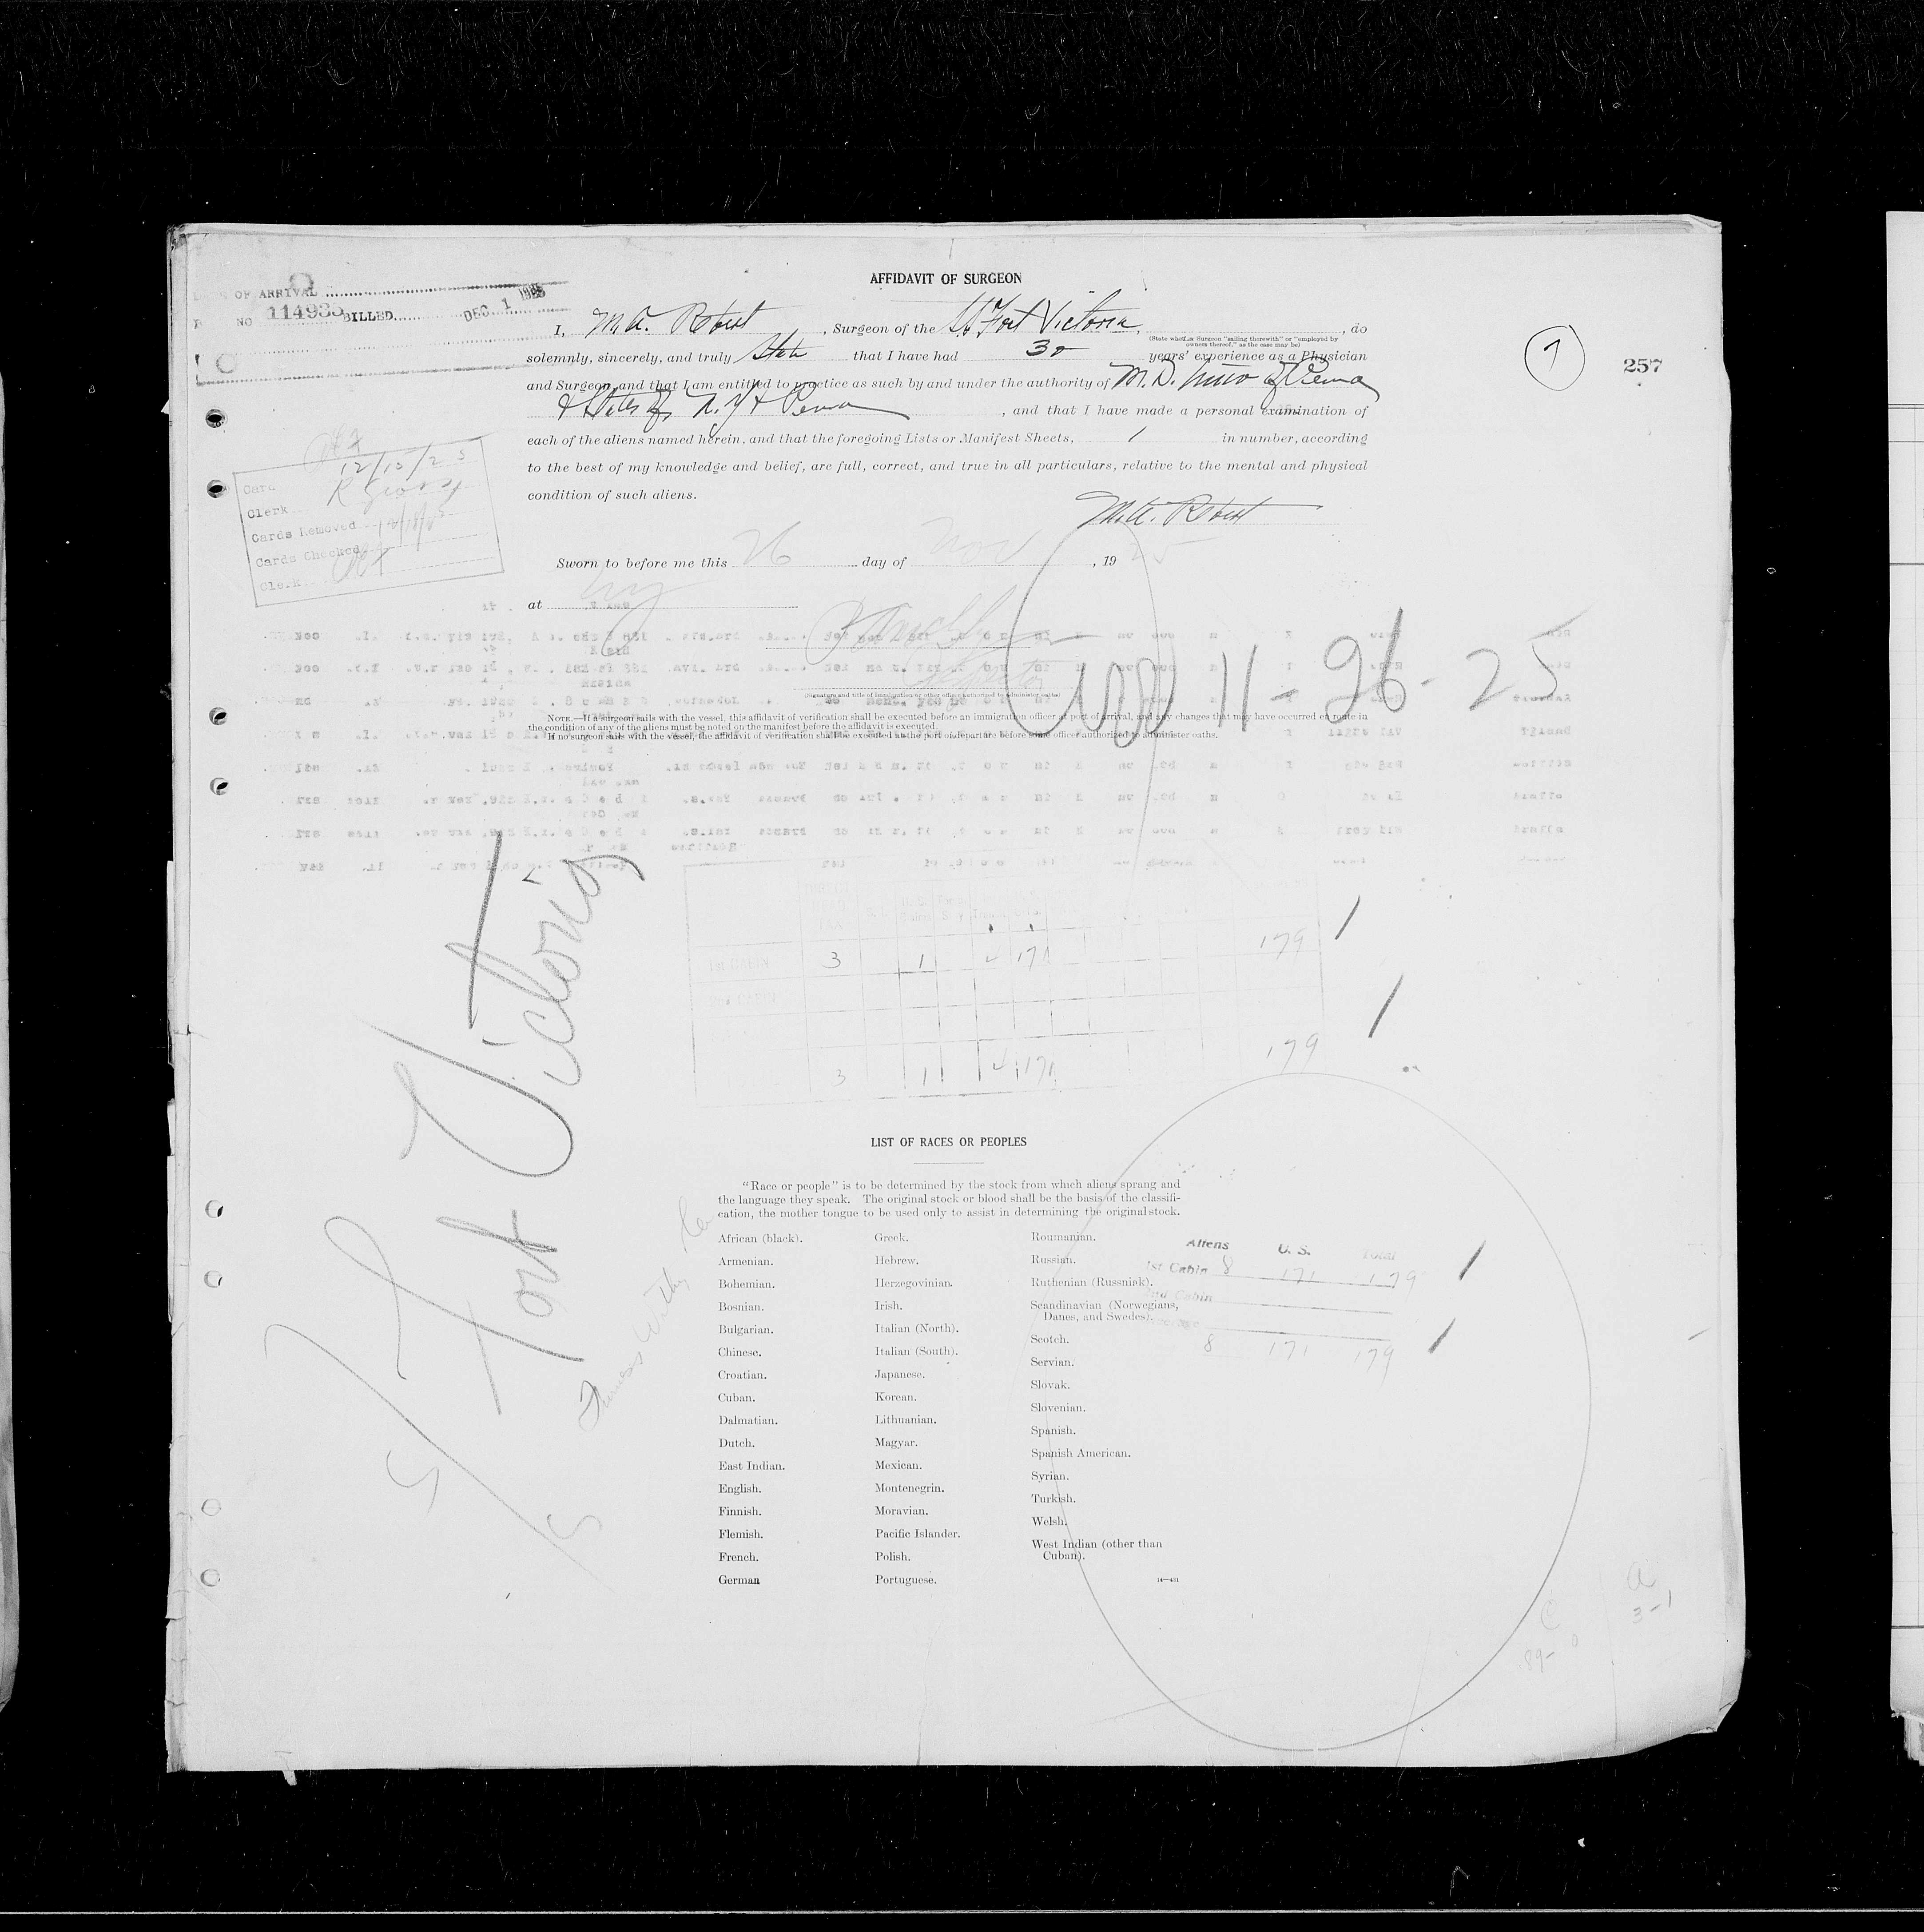 AFFIDAVIT OF SURGEON
OF ARRIVAL
NO 114983 BILLED DEC 1 1925
I, M.A. Robert, Surgeon of the SS Fort Victoria, do
(State whether Surgeon "sailing therewith" or "employed by
owners thereof," as the case may be)
solemnly, sincerely, and truly State that I have had 30 years' experience as a Physician
and Surgeon, and that I am entitled to practice as such by and under the authority of M.D. of Penna
& States of N.Y & Penna, and that I have made a personal examination of
each of the aliens named herein, and that the foregoing Lists or Manifest Sheets, 1 in number, according
to the best of my knowledge and belief, are full, correct, and true in all particulars, relative to the mental and physical
condition of such aliens.
M.A. Robert
1
257
12/15/25
Card
Clerk
Cards Removed
Cards Checked
Clerk
Sworn to before me this 26 day of Nov, 1925
at NY
Inspector
(Signature and title of immigration or other officer authorized to administer oaths)
11-26-25
NOTE.—If a surgeon sails with the vessel, this affidavit of verification shall be executed before an immigration officer at port of arrival, and any changes that may have occurred en route in
the condition of any of the aliens must be noted on the manifest before the affidavit is executed.
If no surgeon sails with the vessel, the affidavit of verification shall be executed at the port of departure before some officer authorized to administer oaths.
1st CABIN 3 1 4 171 179
2nd CABIN
3 1 4 171 179
SS Fort Victoria
LIST OF RACES OR PEOPLES
"Race or people" is to be determined by the stock from which aliens sprang and
the language they speak. The original stock or blood shall be the basis of the classifi-
cation, the mother tongue to be used only to assist in determining the original stock.
African (black).
Armenian.
Bohemian.
Bosnian.
Bulgarian.
Chinese.
Croatian.
Cuban.
Dalmatian.
Dutch.
East Indian.
English.
Finnish.
Flemish.
French.
German
Greek.
Hebrew.
Herzegovinian.
Irish.
Italian (North).
Italian (South).
Japanese.
Korean.
Lithuanian.
Magyar.
Mexican.
Montenegrin.
Moravian.
Pacific Islander.
Polish.
Portuguese.
Roumanian.
Russian.
Ruthenian (Russniak).
Scandinavian (Norwegians,
Danes, and Swedes).
Scotch.
Servian.
Slovak.
Slovenian.
Spanish.
Spanish American.
Syrian.
Turkish.
Welsh.
West Indian (other than
Cuban).
Aliens U. S. Total
1st Cabin 8 171 179
2nd Cabin
8 171 179
3-1
89-0